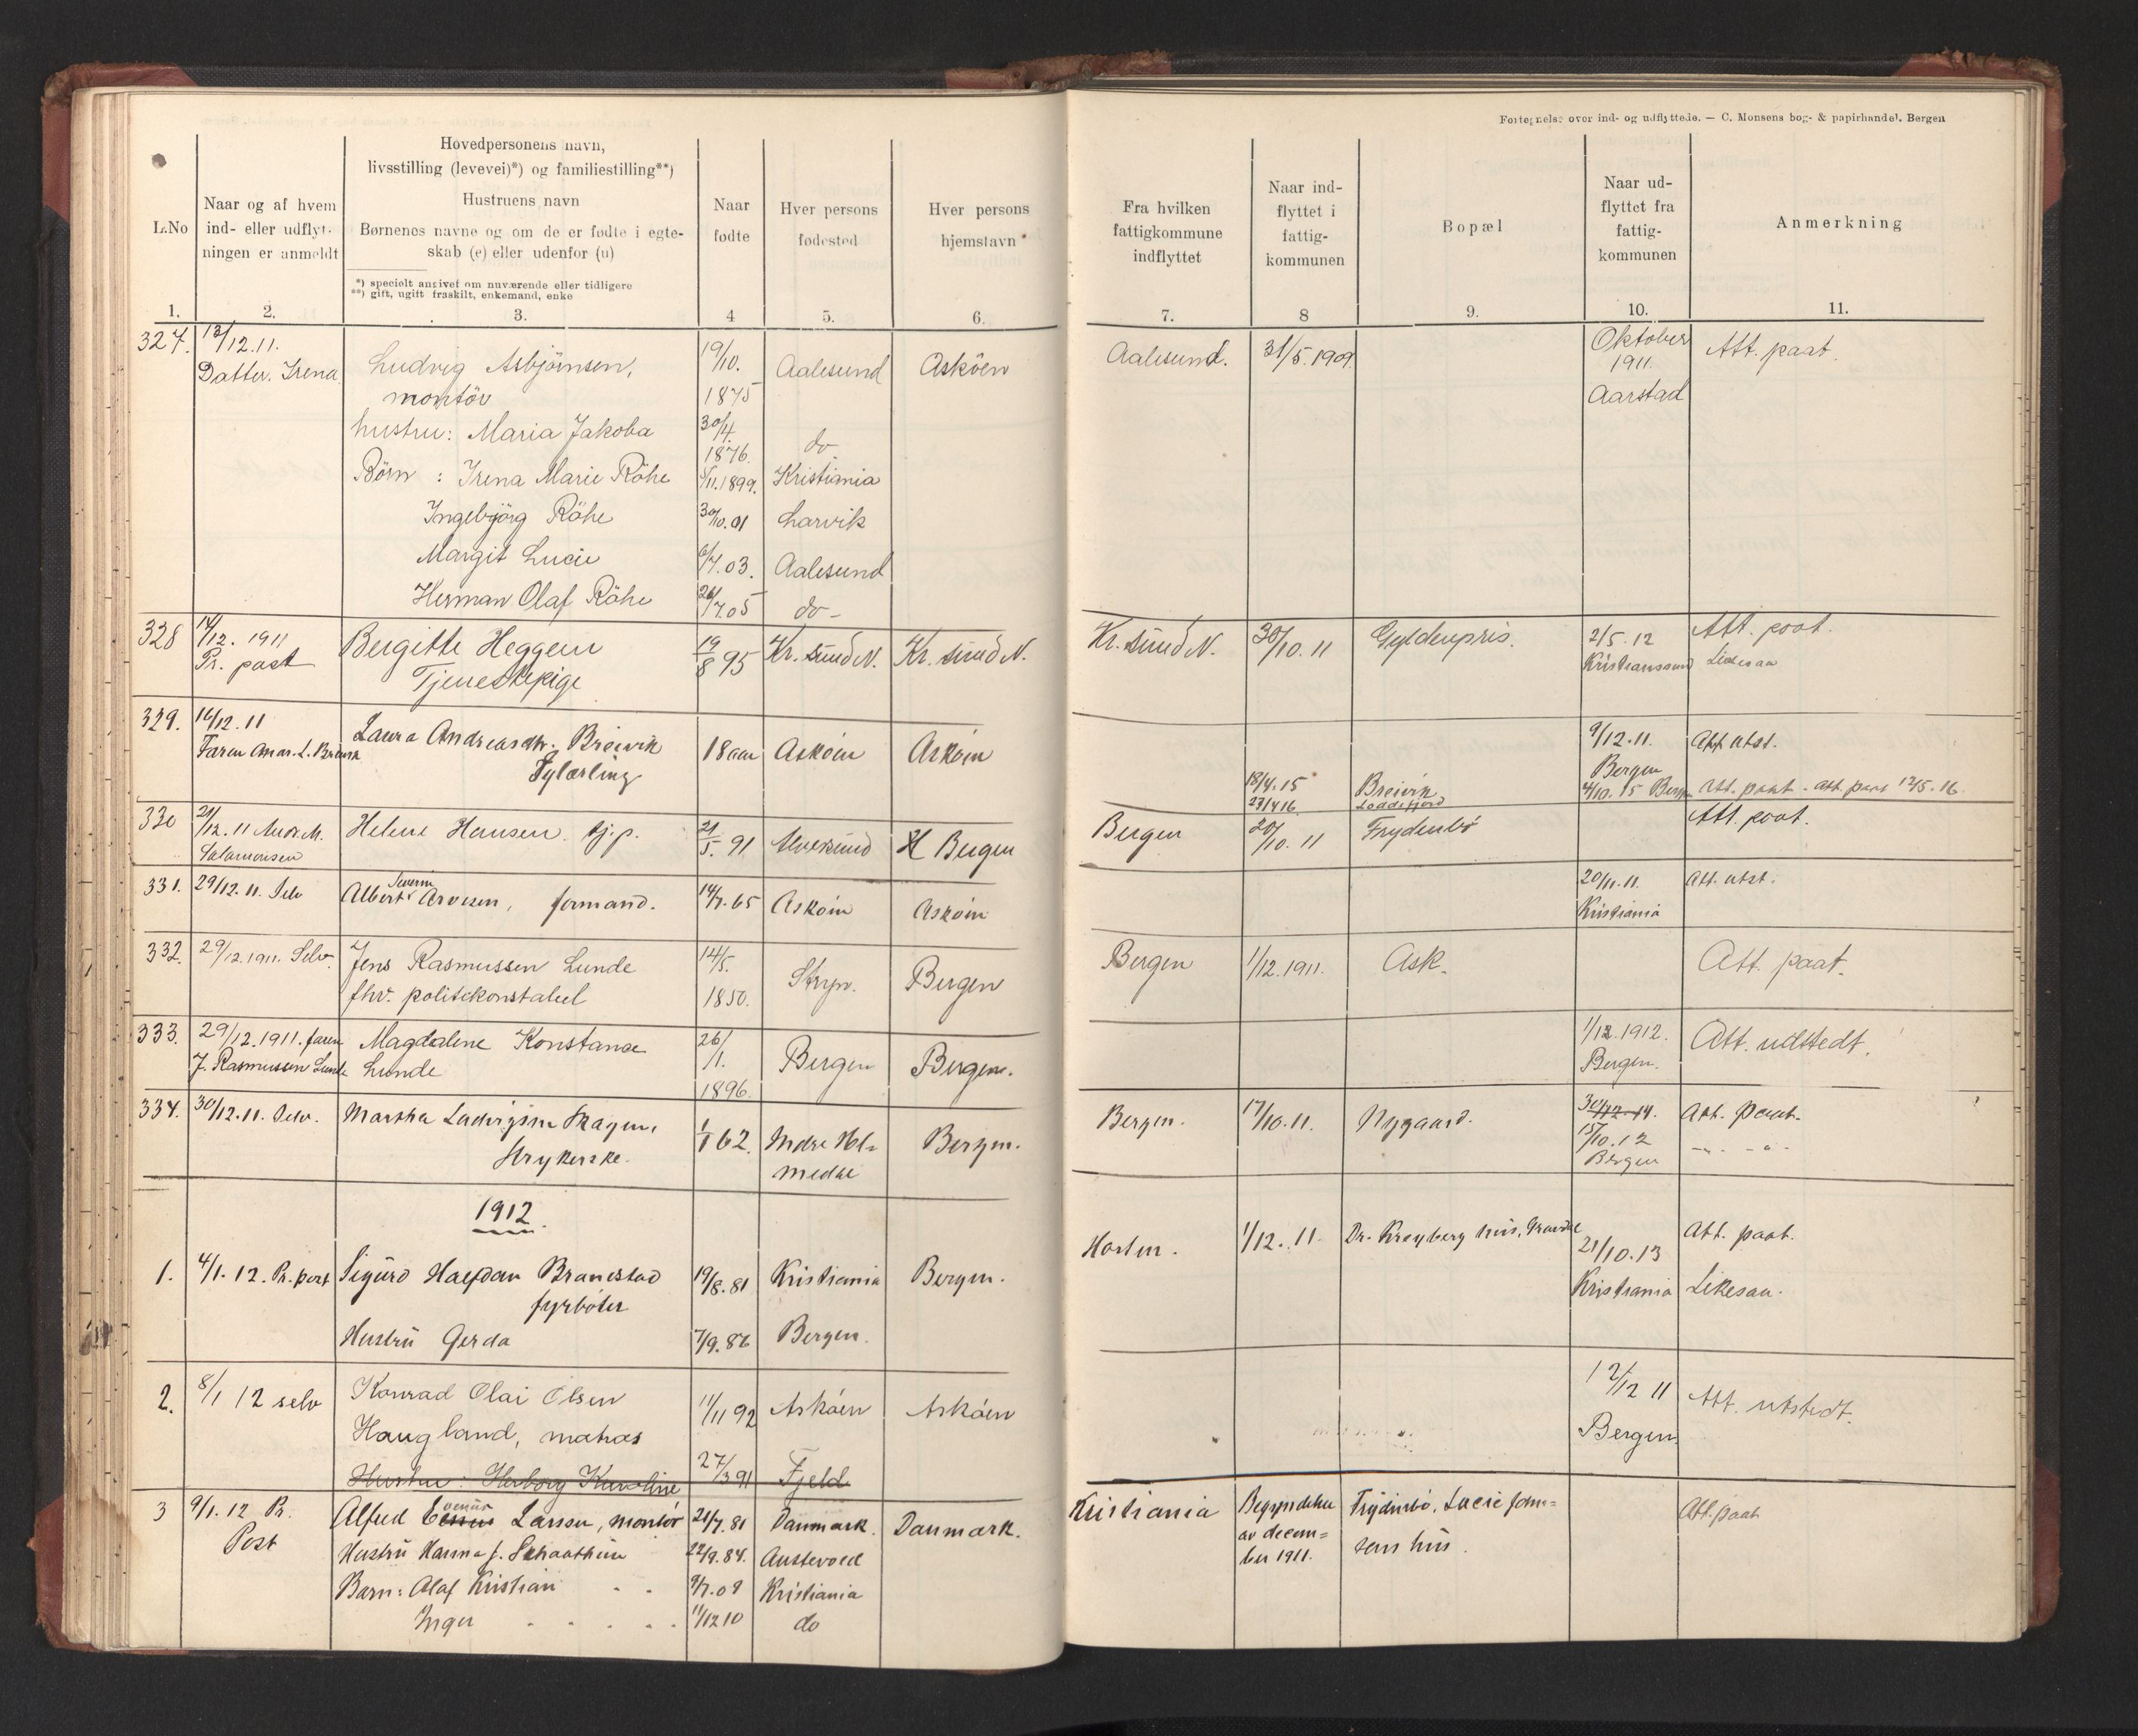 Fortegnelse over ind- og udflyttede. — C. Monsens bog- & papirhandel. Bergen
L.No
Naar og af hvem
ind- eller udflyt-
ningen er anmeldt
Hovedpersonens navn,
livsstilling (levevei)*) og familiestilling**)
Hustruens navn
Børnenes navne og om de er fødte i egte-
skab (e) eller udenfor (u)
*) specielt angivet om nuværende eller tidligere
**) gift, ugift fraskilt, enkemand, enke
Naar
fødte
Hver persons
fødested
Hver persons
hjemstavn
Fra hvilken
fattigkommune
indflyttet
Naar ind-
flyttet i
fattig-
kommunen
Bopæl
Naar ud-
flyttet fra
fattig-
kommunen
Anmerkning
1. 2. 3. 4 5. 6. 7. 8 9. 10. 11.
327. 13/12.11. Ludvig Asbjörnsen, 19/10. Aalesund Asköen Aalesund. 31/5.1909. Oktober Att. paat.
Datter. Irena montör 1875 1911. Aarstad
hustru: Maria Jakoba 30/4. 1876. do
Börn: Irena Marie Röhe /11.1899. Kristiania
Ingebjörg Röhe 30/10.01 Larvik
Margit Lucie 6/7.03. Aalesund
Herman Olaf Röhe 26/7.05 do-
328 14/12. 1911 Bergitte Heggem 19/8 95 Kr. sund N. Kr. sund N. Kr. sund N. 30/10.11 Gyldenpris. 2/5.12 Att. paat.
Pr. post Tjenestepige Kristianssund Likesaa
329. 14/12.11 Laura Andreasdtr. Breivik 18 aar Asköen Asköen 9/12.11. Att. utst.
Faren Andr. L. Breivik Sylærling Bergen
18/4.15 Breivik 4/10.15 Bergen Att. paat. - att. paat 12/5.16.
23/4 16 Loddefjord
330 21/12.11 Andr. M. Helene Hansen tj.p. 21/5. 91 Alvesund Bergen Bergen 20/10.11 Frydenbö Att. paat.
Salamonsen
331. 29/12.11. Selv Albert Severin Arvesen, formand. 14/7.65 Asköin Asköin 20/11.11. Att. utst.
Kristiania
332. 29/12.1911. Selv. Jens Rasmussen Lunde 14/5. Stryn. Bergen Bergen 1/12.1911. Ask. Att. paat.
fhv. politikonstabel 1850.
333. 29/12.1911. faren Magdalene Konstanse 26/1. Bergen Bergen. 1/12.1912. Att. udstedt.
J. Rasmussen Lunde Lunde 1896. Bergen.
334. 30/12.11. Selv. Martha Ludvigsen Skagen, 1/1 62. Indre Hol- Bergen. Bergen. 17/10.11. Nygaard. 30/12.14. Att. paat.
Strykerske. medal 15/10.12 -"- -"-
Bergen
1912.
1. 4/1.12. Pr. post Sigurd Halfdan Branestad 19/8.81 Kristiania Bergen. Horten. 1/12.11. Dr. Kreyberg hus, Gravdal 21/10.13 Att. paat.
fyrböter Kristiania Likesaa.
Hustru Gerda 7/9.86 Bergen.
2. 8/1 12 selv Konrad Olai Olsen 11/11 92 Asköen Asköen 12/12 11 Att. utstedt.
Haugland, matros Bergen.
Hustru: Herborg Karoline 27/3 91 Fjeld
3 9/1.12 Pr. Alfred Larsen, montör 21/7.81 Danmark. Danmark. Kristiania Begyndelse Frydenbö, Lucie John- Att. paat
Post Hustru Hanna f. 22/9.84. Austevold av decem- sens hus.
Barn: Olaf Kristian 9/7.08 Kristiania ber 1911.
Inger 11/12 10 do